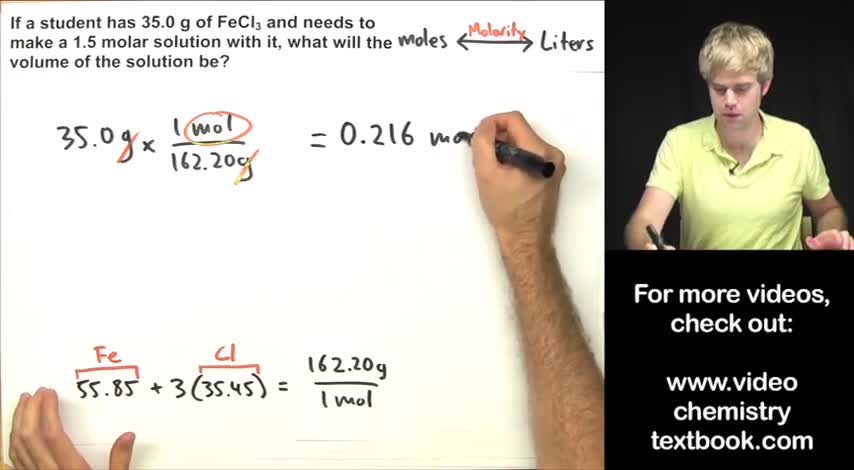 If a student has 35.0 g of FeCl₃ and needs to
make a 1.5 molar solution with it, what will the
volume of the solution be?
moles Molarity Liters
35.0g × 1 mol / 162.20g = 0.216
Fe Cl
55.85 + 3(35.45) = 162.20g / 1 mol
For more videos,
check out:
www.video
chemistry
textbook.com